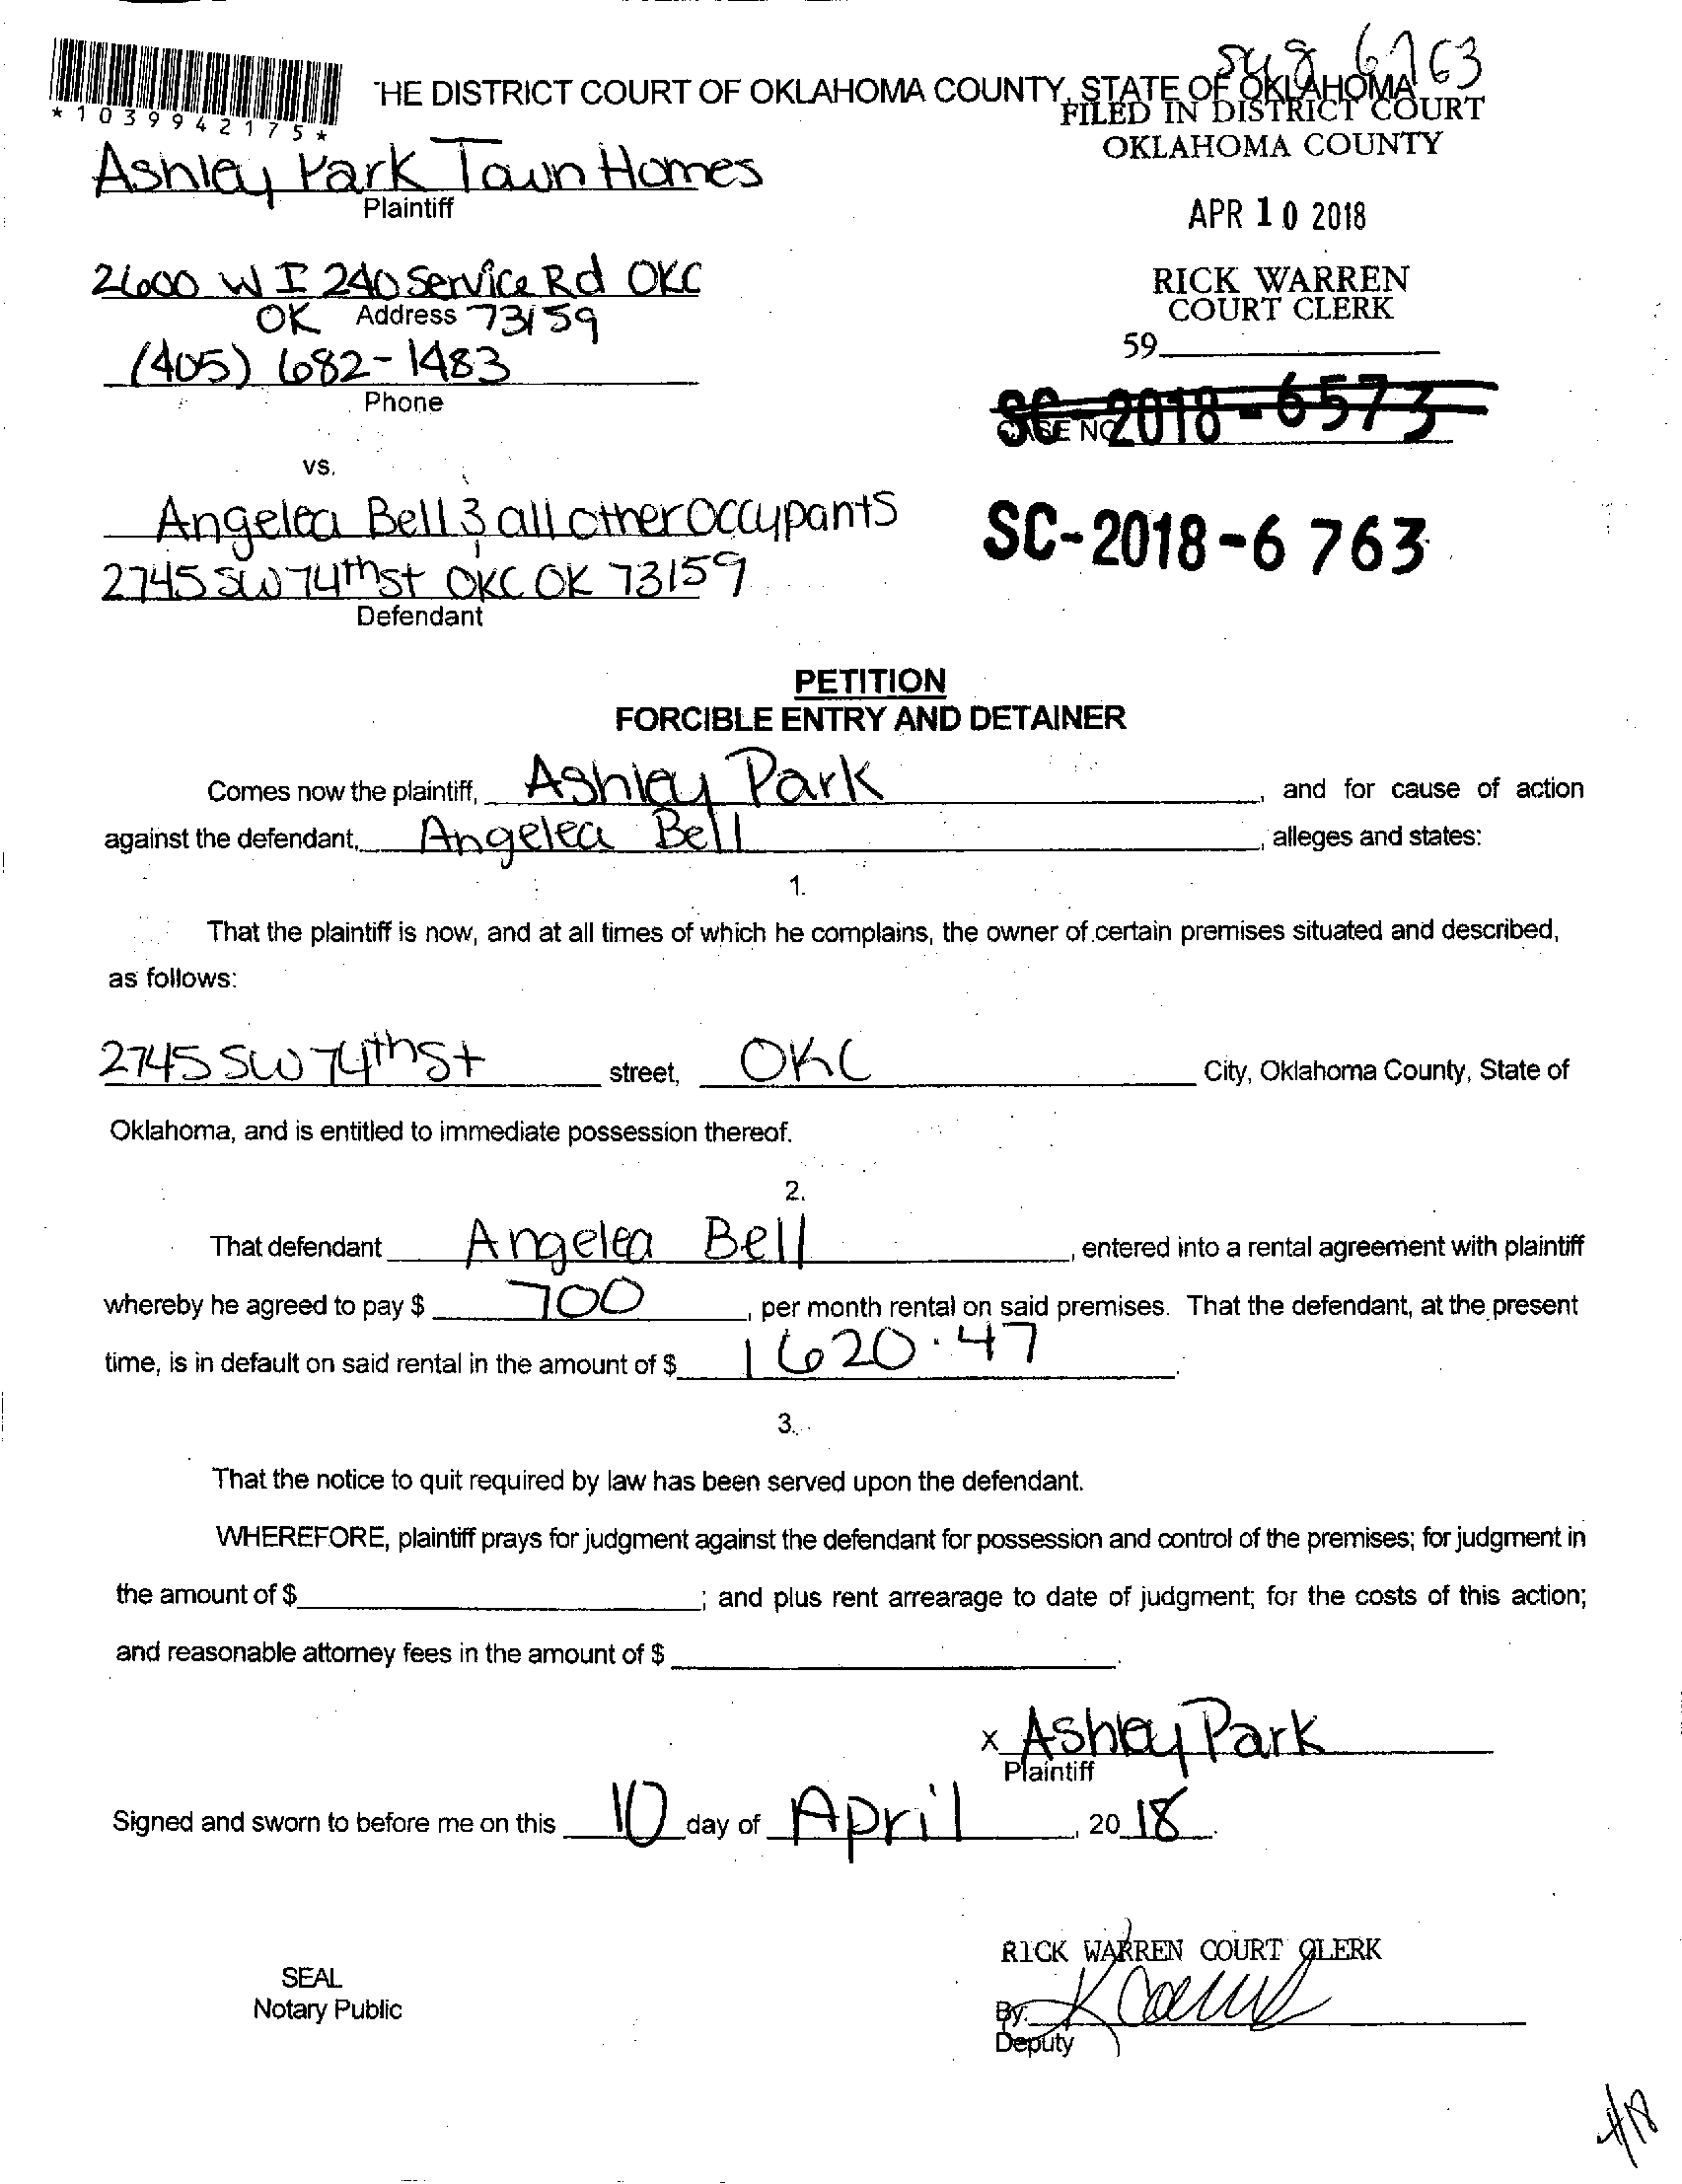 THE DISTRICT COURT OF OKLAHOMA COUNTY, STATE OF OKLAHOMA
6763
FILED IN DISTRICT COURT
OKLAHOMA COUNTY
*1039942175*
Ashley Park Town Homes
Plaintiff
APR 10 2018
2600 W I 240 Service Rd OKC
OK 73159
Address
RICK WARREN
COURT CLERK
59
(405) 682-1483
Phone
SC-2018-6573
CASE NO
vs.
Angelea Bell & all other occupants
SC-2018-6763
2745 SW 74th st OKC OK 73159
Defendant
PETITION
FORCIBLE ENTRY AND DETAINER
Comes now the plaintiff, Ashley Park, and for cause of action
against the defendant, Angelea Bell, alleges and states:
1.
That the plaintiff is now, and at all times of which he complains, the owner of certain premises situated and described,
as follows:
2745 SW 74th St street, OKC City, Oklahoma County, State of
Oklahoma, and is entitled to immediate possession thereof.
2.
That defendant Angelea Bell, entered into a rental agreement with plaintiff
whereby he agreed to pay $ 700, per month rental on said premises. That the defendant, at the present
time, is in default on said rental in the amount of $ 1620.47.
3.
That the notice to quit required by law has been served upon the defendant.
WHEREFORE, plaintiff prays for judgment against the defendant for possession and control of the premises; for judgment in
the amount of $; and plus rent arrearage to date of judgment; for the costs of this action;
and reasonable attorney fees in the amount of $.
x Ashley Park
Plaintiff
Signed and sworn to before me on this 10 day of April, 2018.
RICK WARREN COURT CLERK
SEAL
Notary Public
By:
Deputy
4/18